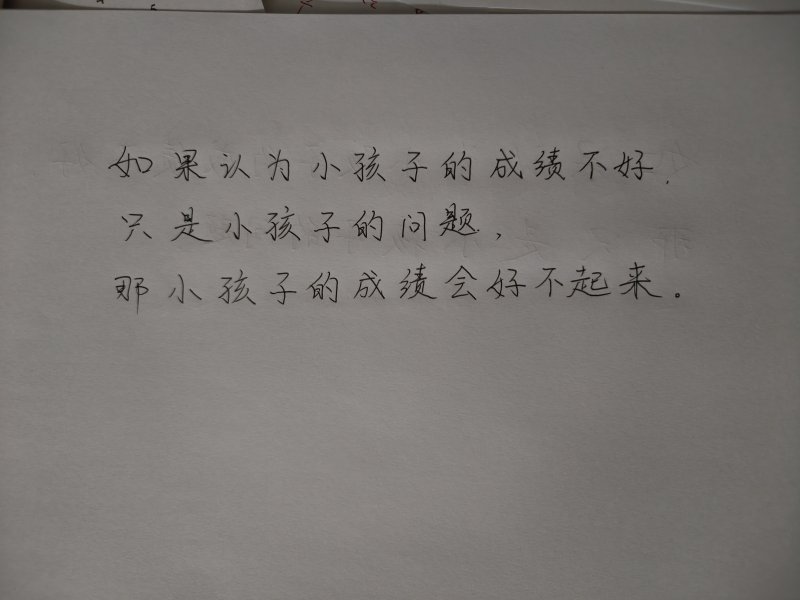 如果认为小孩子的成绩不好，
只是小孩子的问题，
那小孩子的成绩会好不起来。